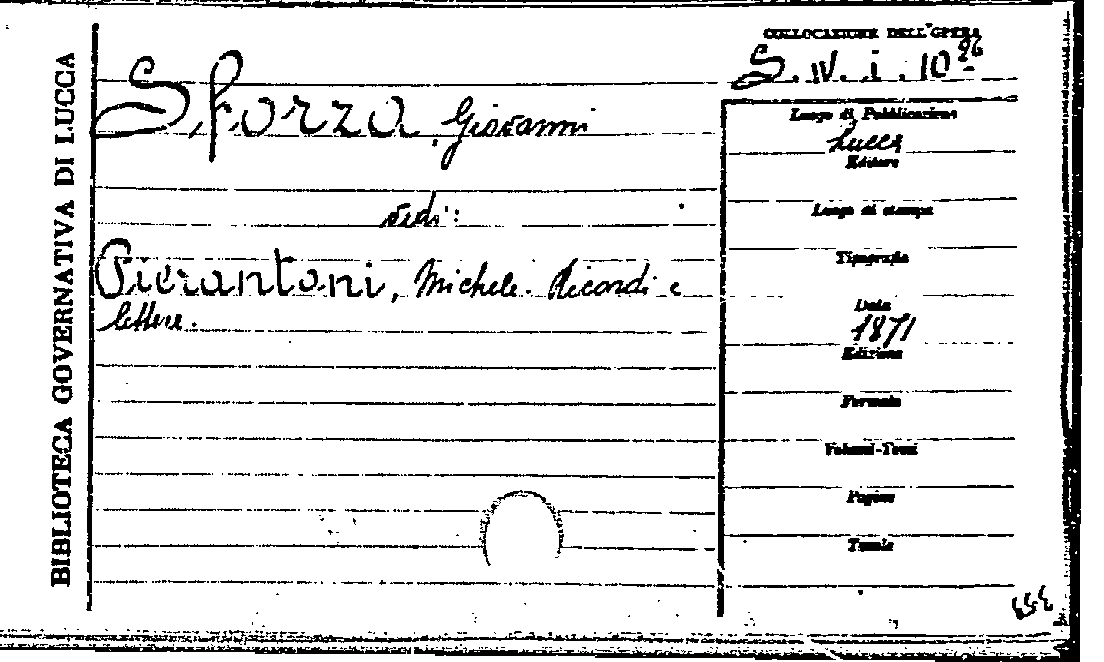 BIBLIOTECA GOVERNATIVA DI LUCCA
Sforza, Giovanni
vedi:
Pierantoni, Michele. Ricordi e
lettere.
COLLOCAZIONE DELL'OPERA
S. IV. i. 10 26
Luogo di Pubblicazione
Lucca
Editore
Luogo di stampa
Tipografia
Data
1871
Edizione
Formato
Volumi-Tomi
Pagine
Tavole